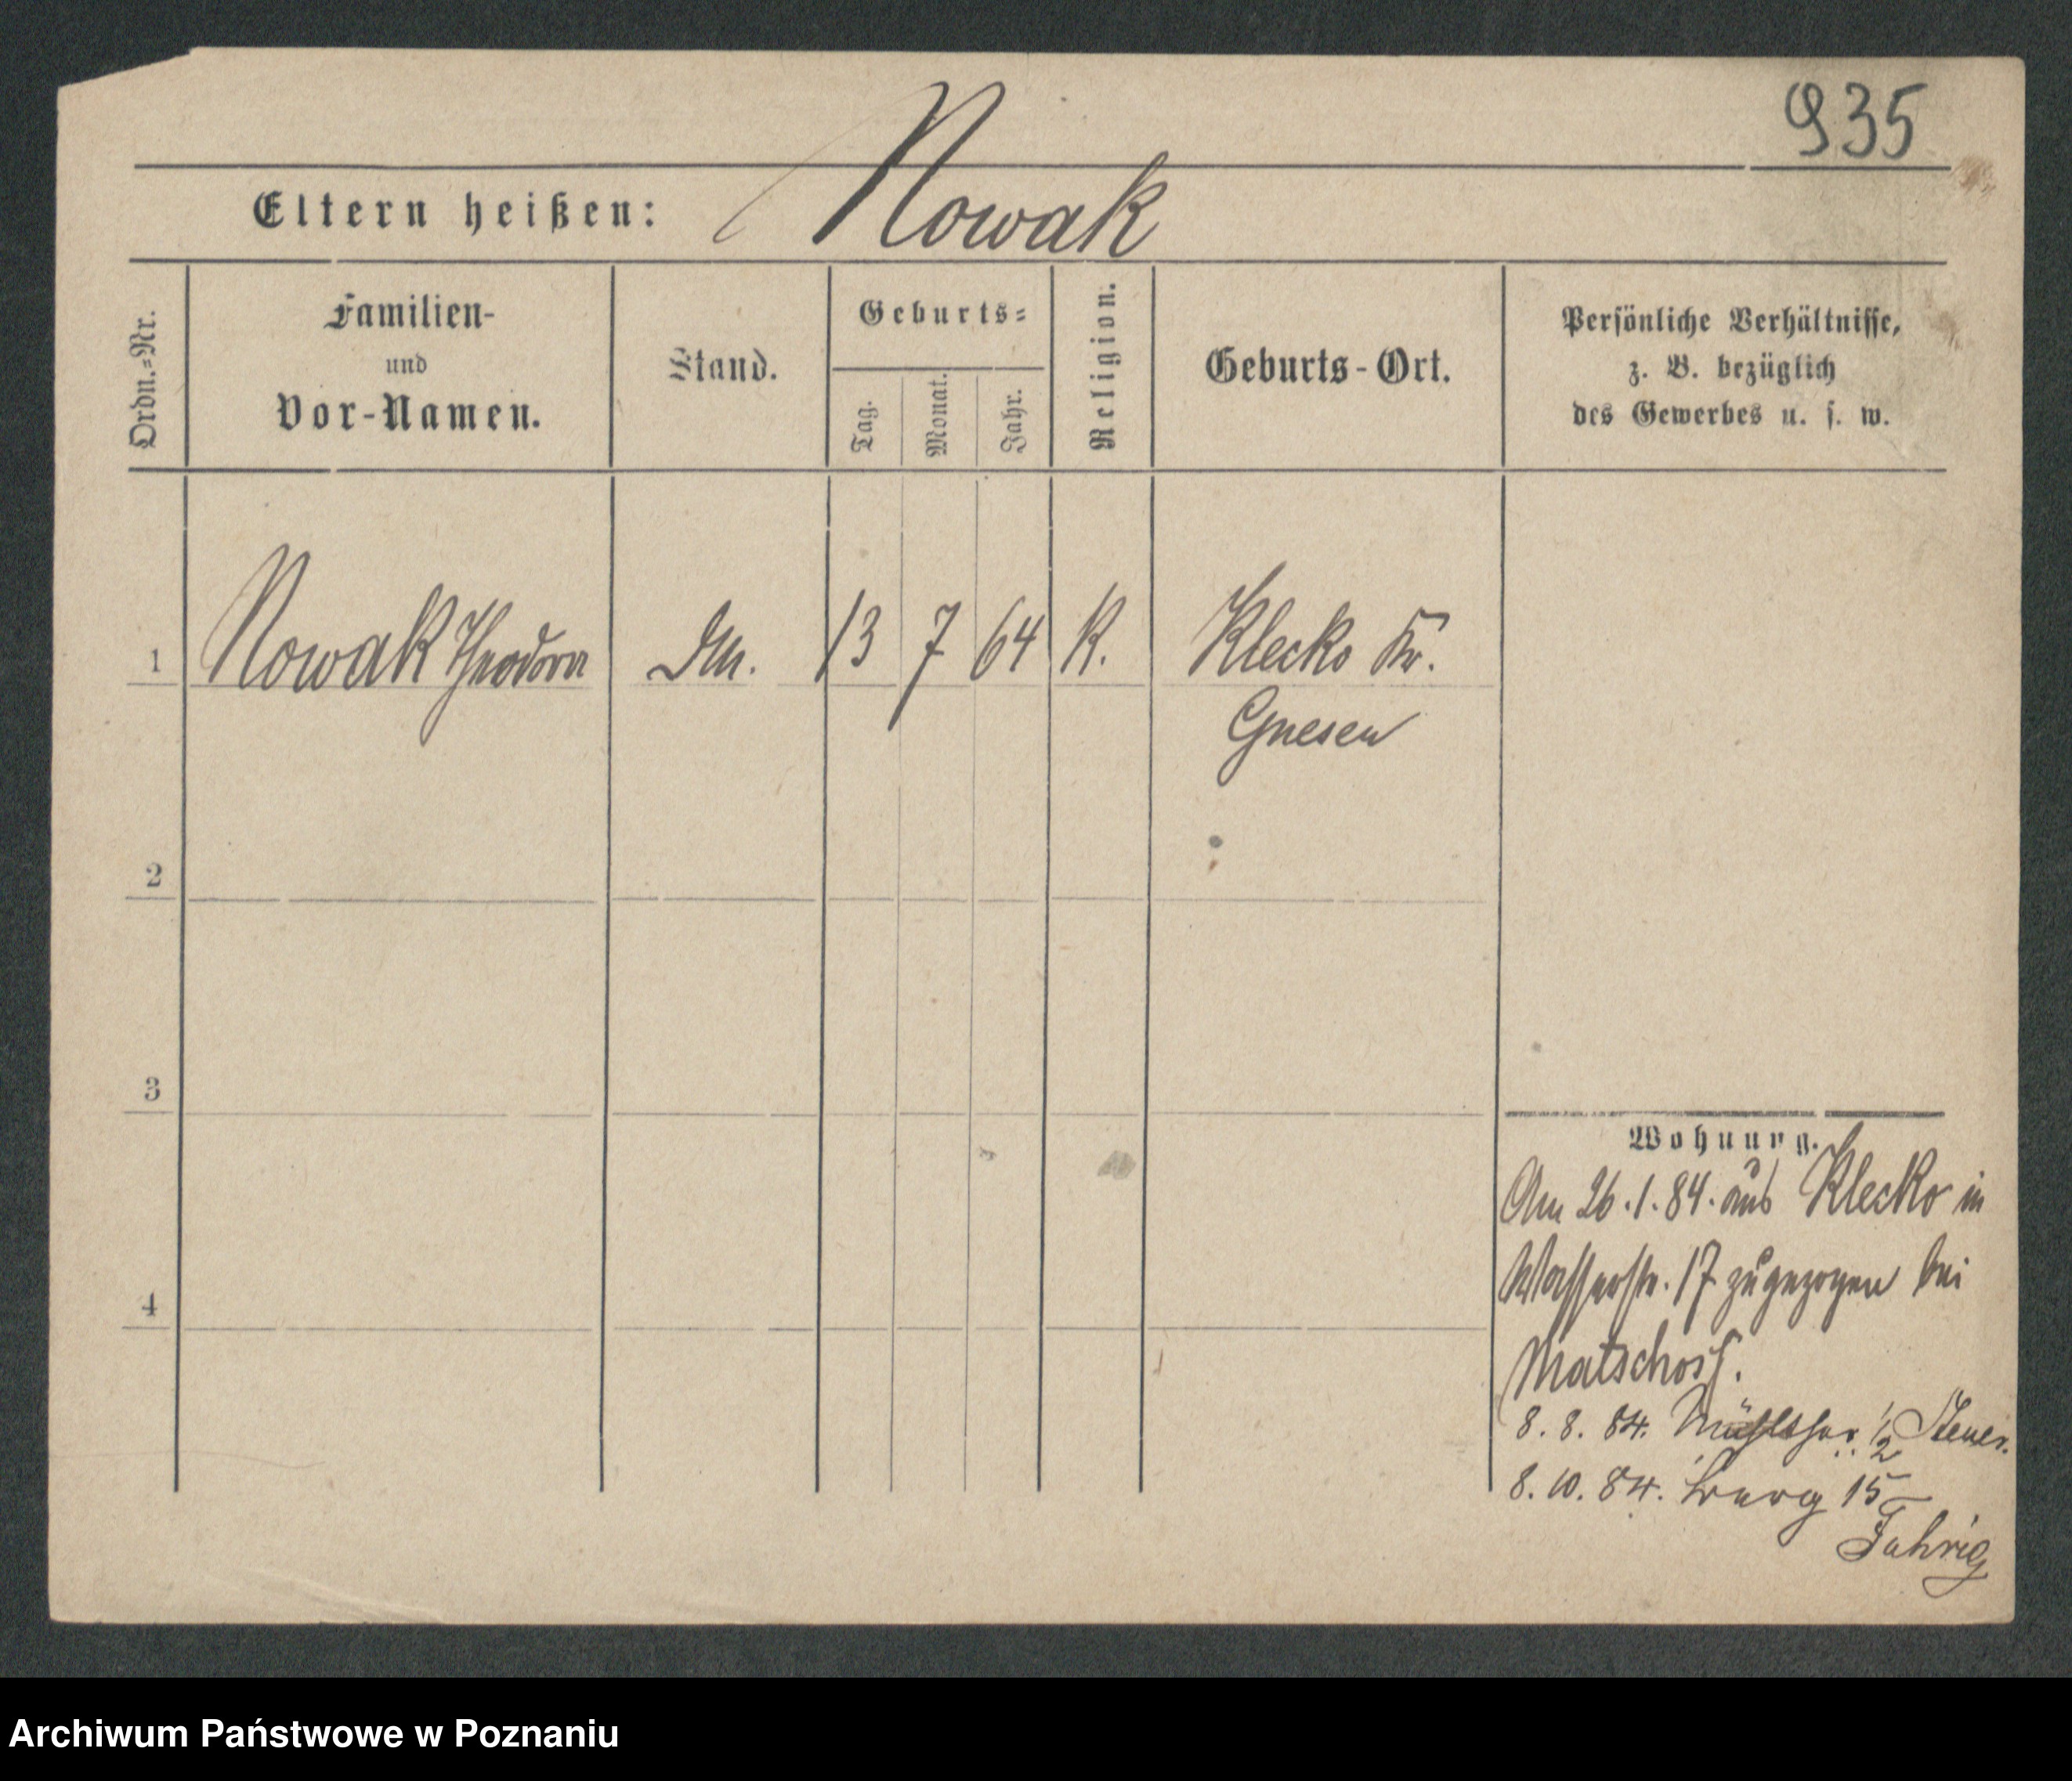 935
Eltern heißen: Nowak
Ordn.=Nr.
Familien-
und
Vor-Namen.
Stand.
Geburts=
Tag.
Monat.
Jahr.
Religion.
Geburts-Ort.
Persönliche Verhältnisse,
z. B. bezüglich
des Gewerbes u. s. w.
1 Nowak Theodora 13 7 64 K. Klecko Kr.
Gnesen
2
3
4
Wohnung.
Am 26.1.84. aus Klecko in
Wasserstr. 17 zugezogen bei
Matschoss.
8. 8. 84. 1/2 Steuer.
8. 10. 84. 15
Fahrig
Archiwum Państwowe w Poznaniu